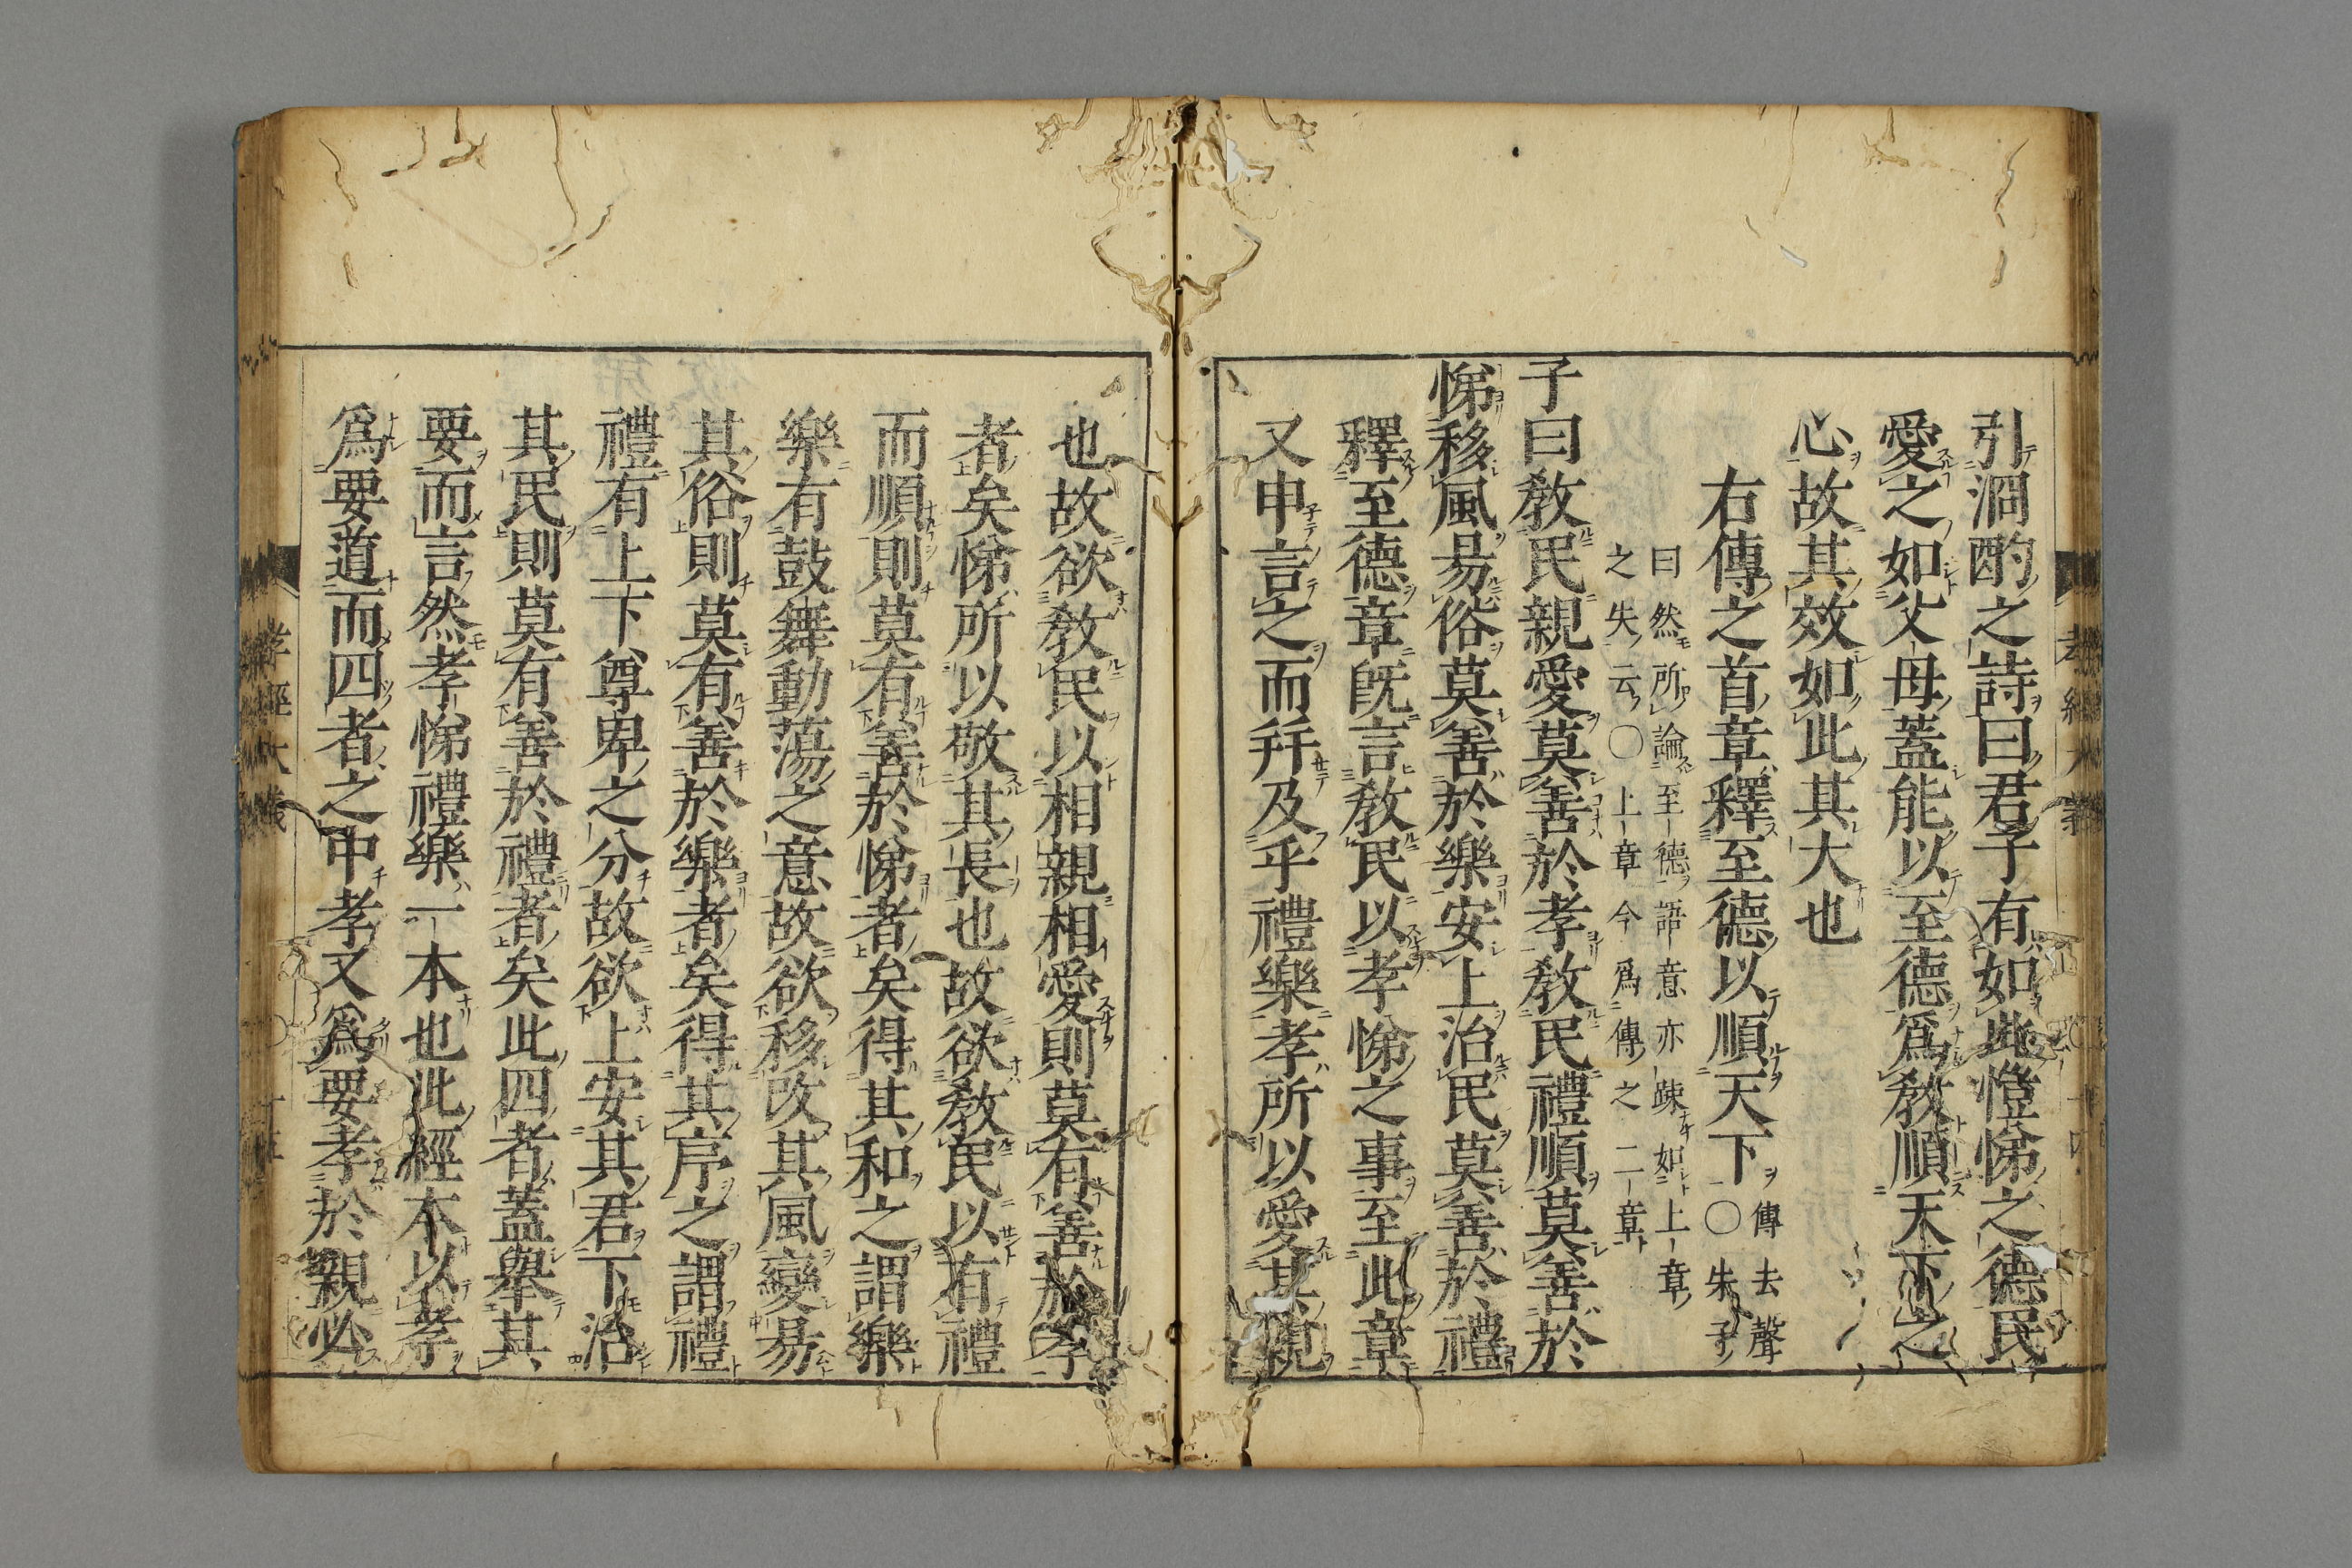 引泂酌之詩曰君子有如此愷悌之德民
愛之如父母蓋能以至德爲教順天下之
心故其效如此其大也
右傳之首章釋至德以順天下
傳去聲
〇朱子
曰然所論至德語意亦疎如上章
之失云〇上章今爲傳之二章
子曰教民親愛莫善於孝教民禮順莫善於
悌移風易俗莫善於樂安上治民莫善於禮
釋至德章旣言教民以孝悌之事至此章
又申言之而幷及乎禮樂孝所以愛其親
也故欲教民以相親相愛則莫有善於孝
者矣悌所以敬其長也故欲教民以有禮
而順則莫有善於悌者矣得其和之謂樂
樂有鼓舞動蕩之意故欲移改其風變易
其俗則莫有善於樂者矣得其序之謂禮
禮有上下尊卑之分故欲上安其君下治
其民則莫有善於禮者矣此四者蓋舉其
要而言然孝悌禮樂一本也此經本以孝
爲要道而四者之中孝又爲要孝於親必
孝經大義